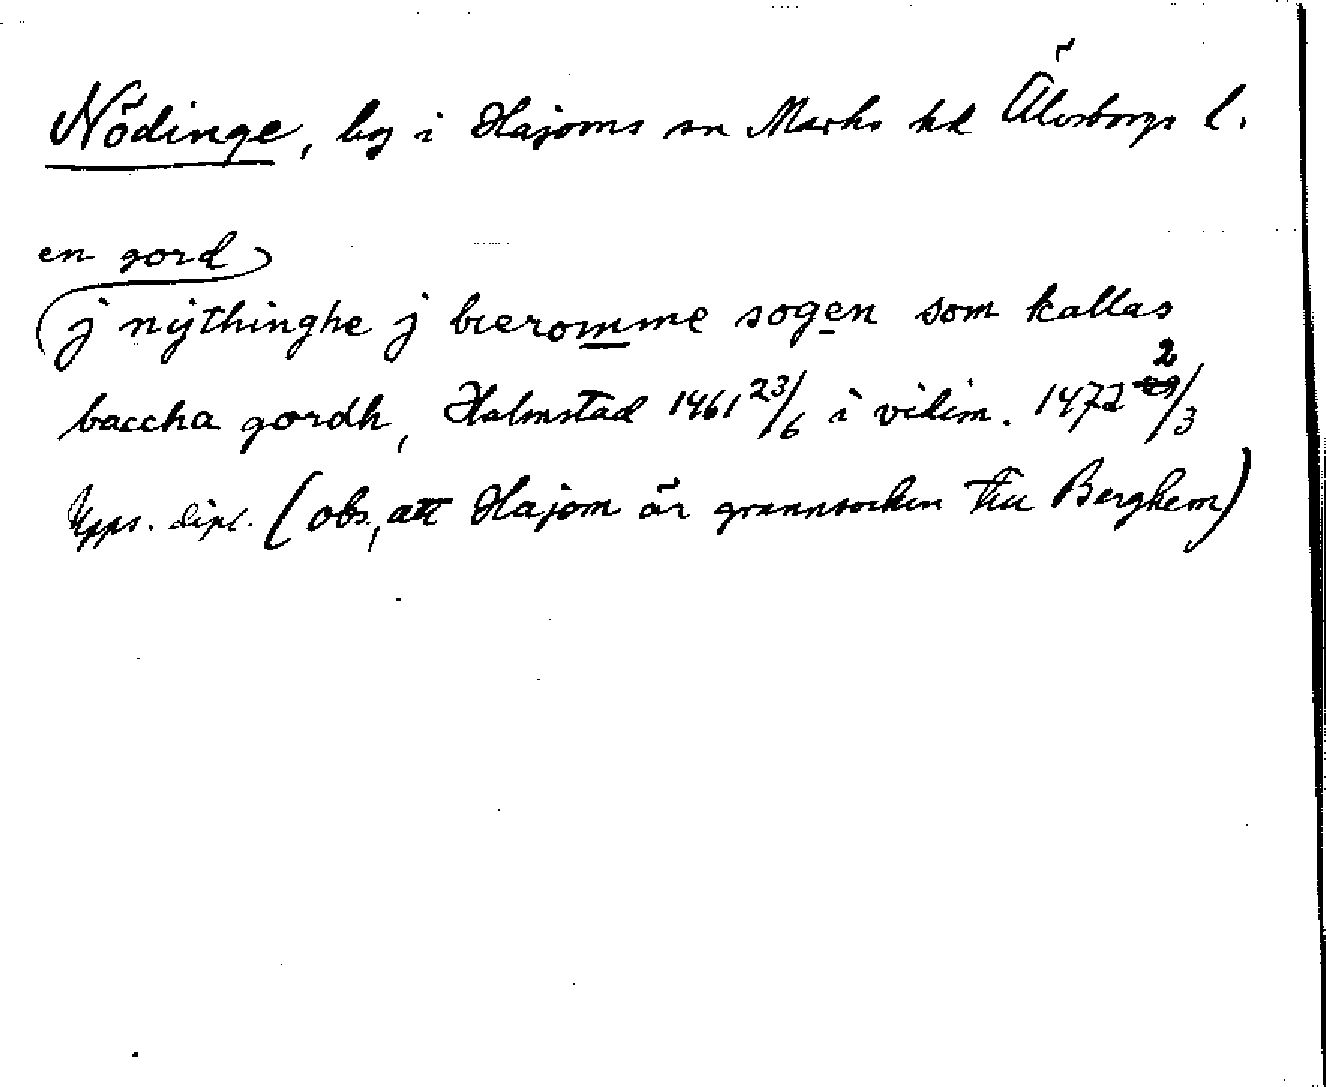 Nödinge, by i Hajoms sn Marks hd Älvsborgs l.
en gord
j nÿthinghe j bieromme sogen som kallas
baccha gordh, Halmstad 1461 23/6 i vidim. 1472 2/3
Upps. dipl. (obs, att Hajom är grannsocken till Berghem)